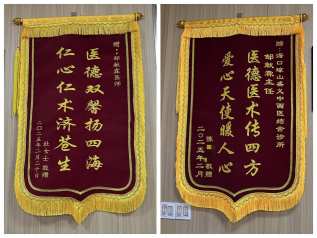 赠：邬敏霞医师
医德双馨扬四海
仁心仁术济苍生
杜女士敬赠
二〇二五年二月二十日
赠：海口琼山益义中西医结合诊所
邬敏霞主任
医德医术传四方
爱心天使暖人心
敬赠
二〇二五年二月